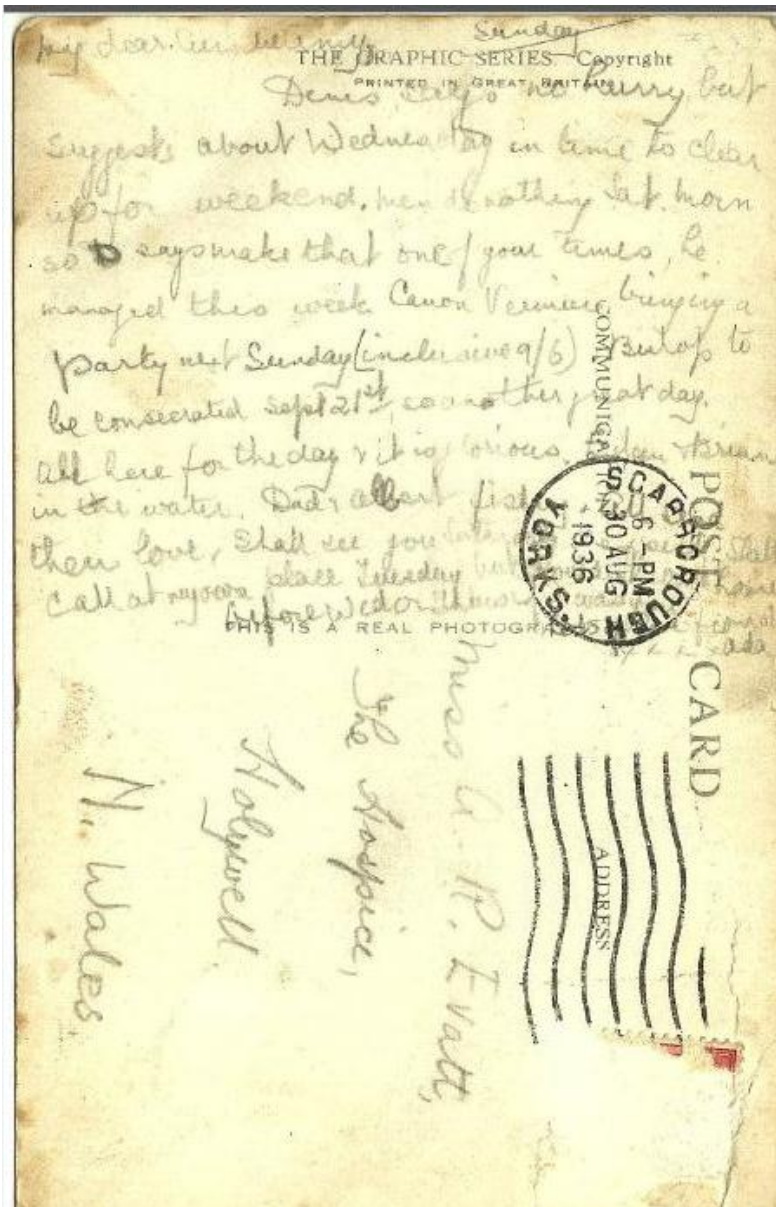 Sunday
My dear
THE GRAPHIC SERIES Copyright
PRINTED IN GREAT BRITAIN
Denis says no hurry but
suggests about Wednesday in time to clear
up for weekend. men do nothing Sat. morn
so D says make that one of your times, he
managed this week Canon bringing a
party next Sunday (inclusive 9/6)
be consecrated Sept 21st, so another great day.
All here for the day & it is glorious. Brian
in the water. Dad & Albert
their love, Shall see you Shall
Call at my own place Tuesday but
before Wed or Thurs
THIS IS A REAL PHOTOGRAPH
POST CARD
COMMUNICATION
SCARBOROUGH
6 - PM
30 AUG
1936
YORKS.
ADDRESS
Miss A. R. Evatt,
The Hospice,
Holywell.
N. Wales.